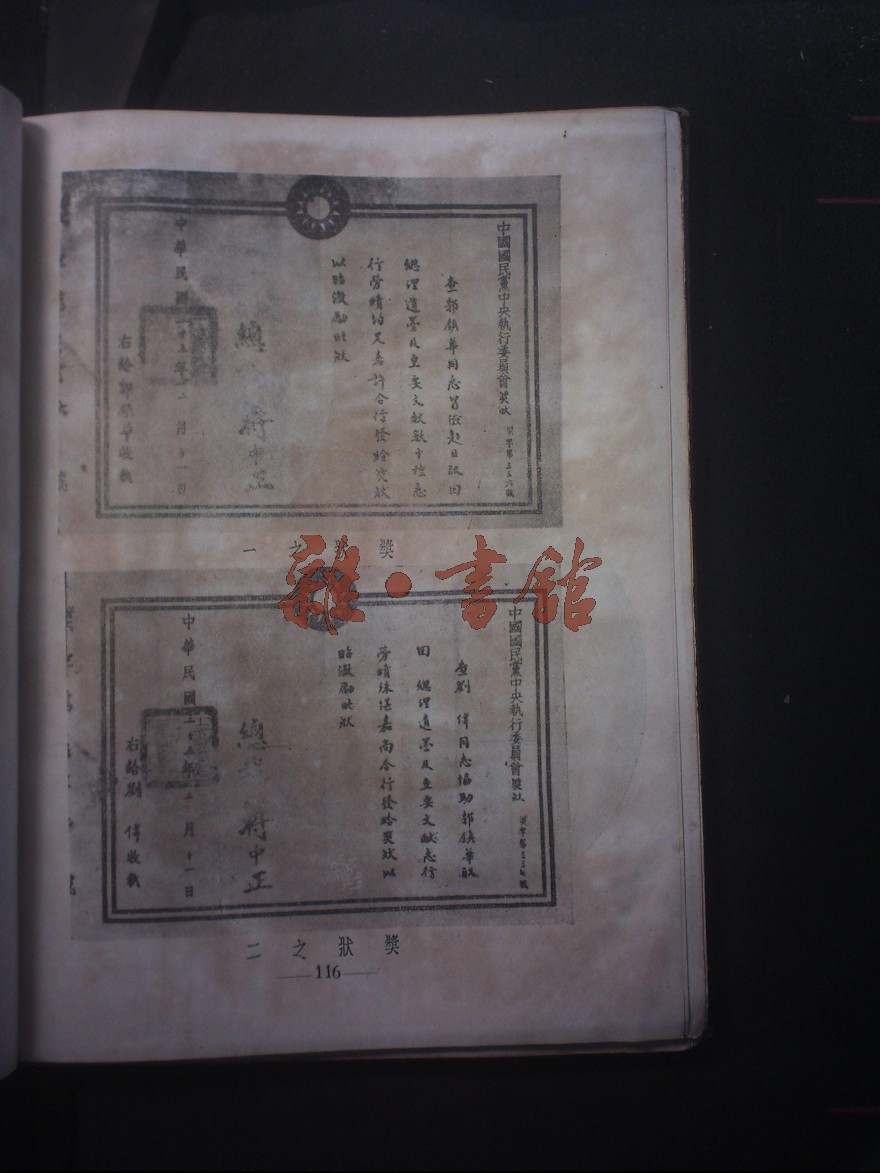 中國國民黨中央執行委員會獎狀
獎字第三三六號
查郭鎮華同志冒險赴日取回
總理遺墨及重要文獻數十種志
行勞績均足嘉許合行發給獎狀
以昭激勵此狀
總 蔣中正
中華民國二十五年十二月十一日
右給郭鎮華收執
獎狀之一
雜·書館
中國國民黨中央執行委員會獎狀
獎字第三三七號
查劉 偉同志協助郭鎮華取
回 總理遺墨及重要文獻志行
勞績殊堪嘉尚合行發給獎狀以
昭激勵此狀
總 蔣中正
中華民國二十五年十二月十一日
右給劉 偉收執
獎狀之二
116